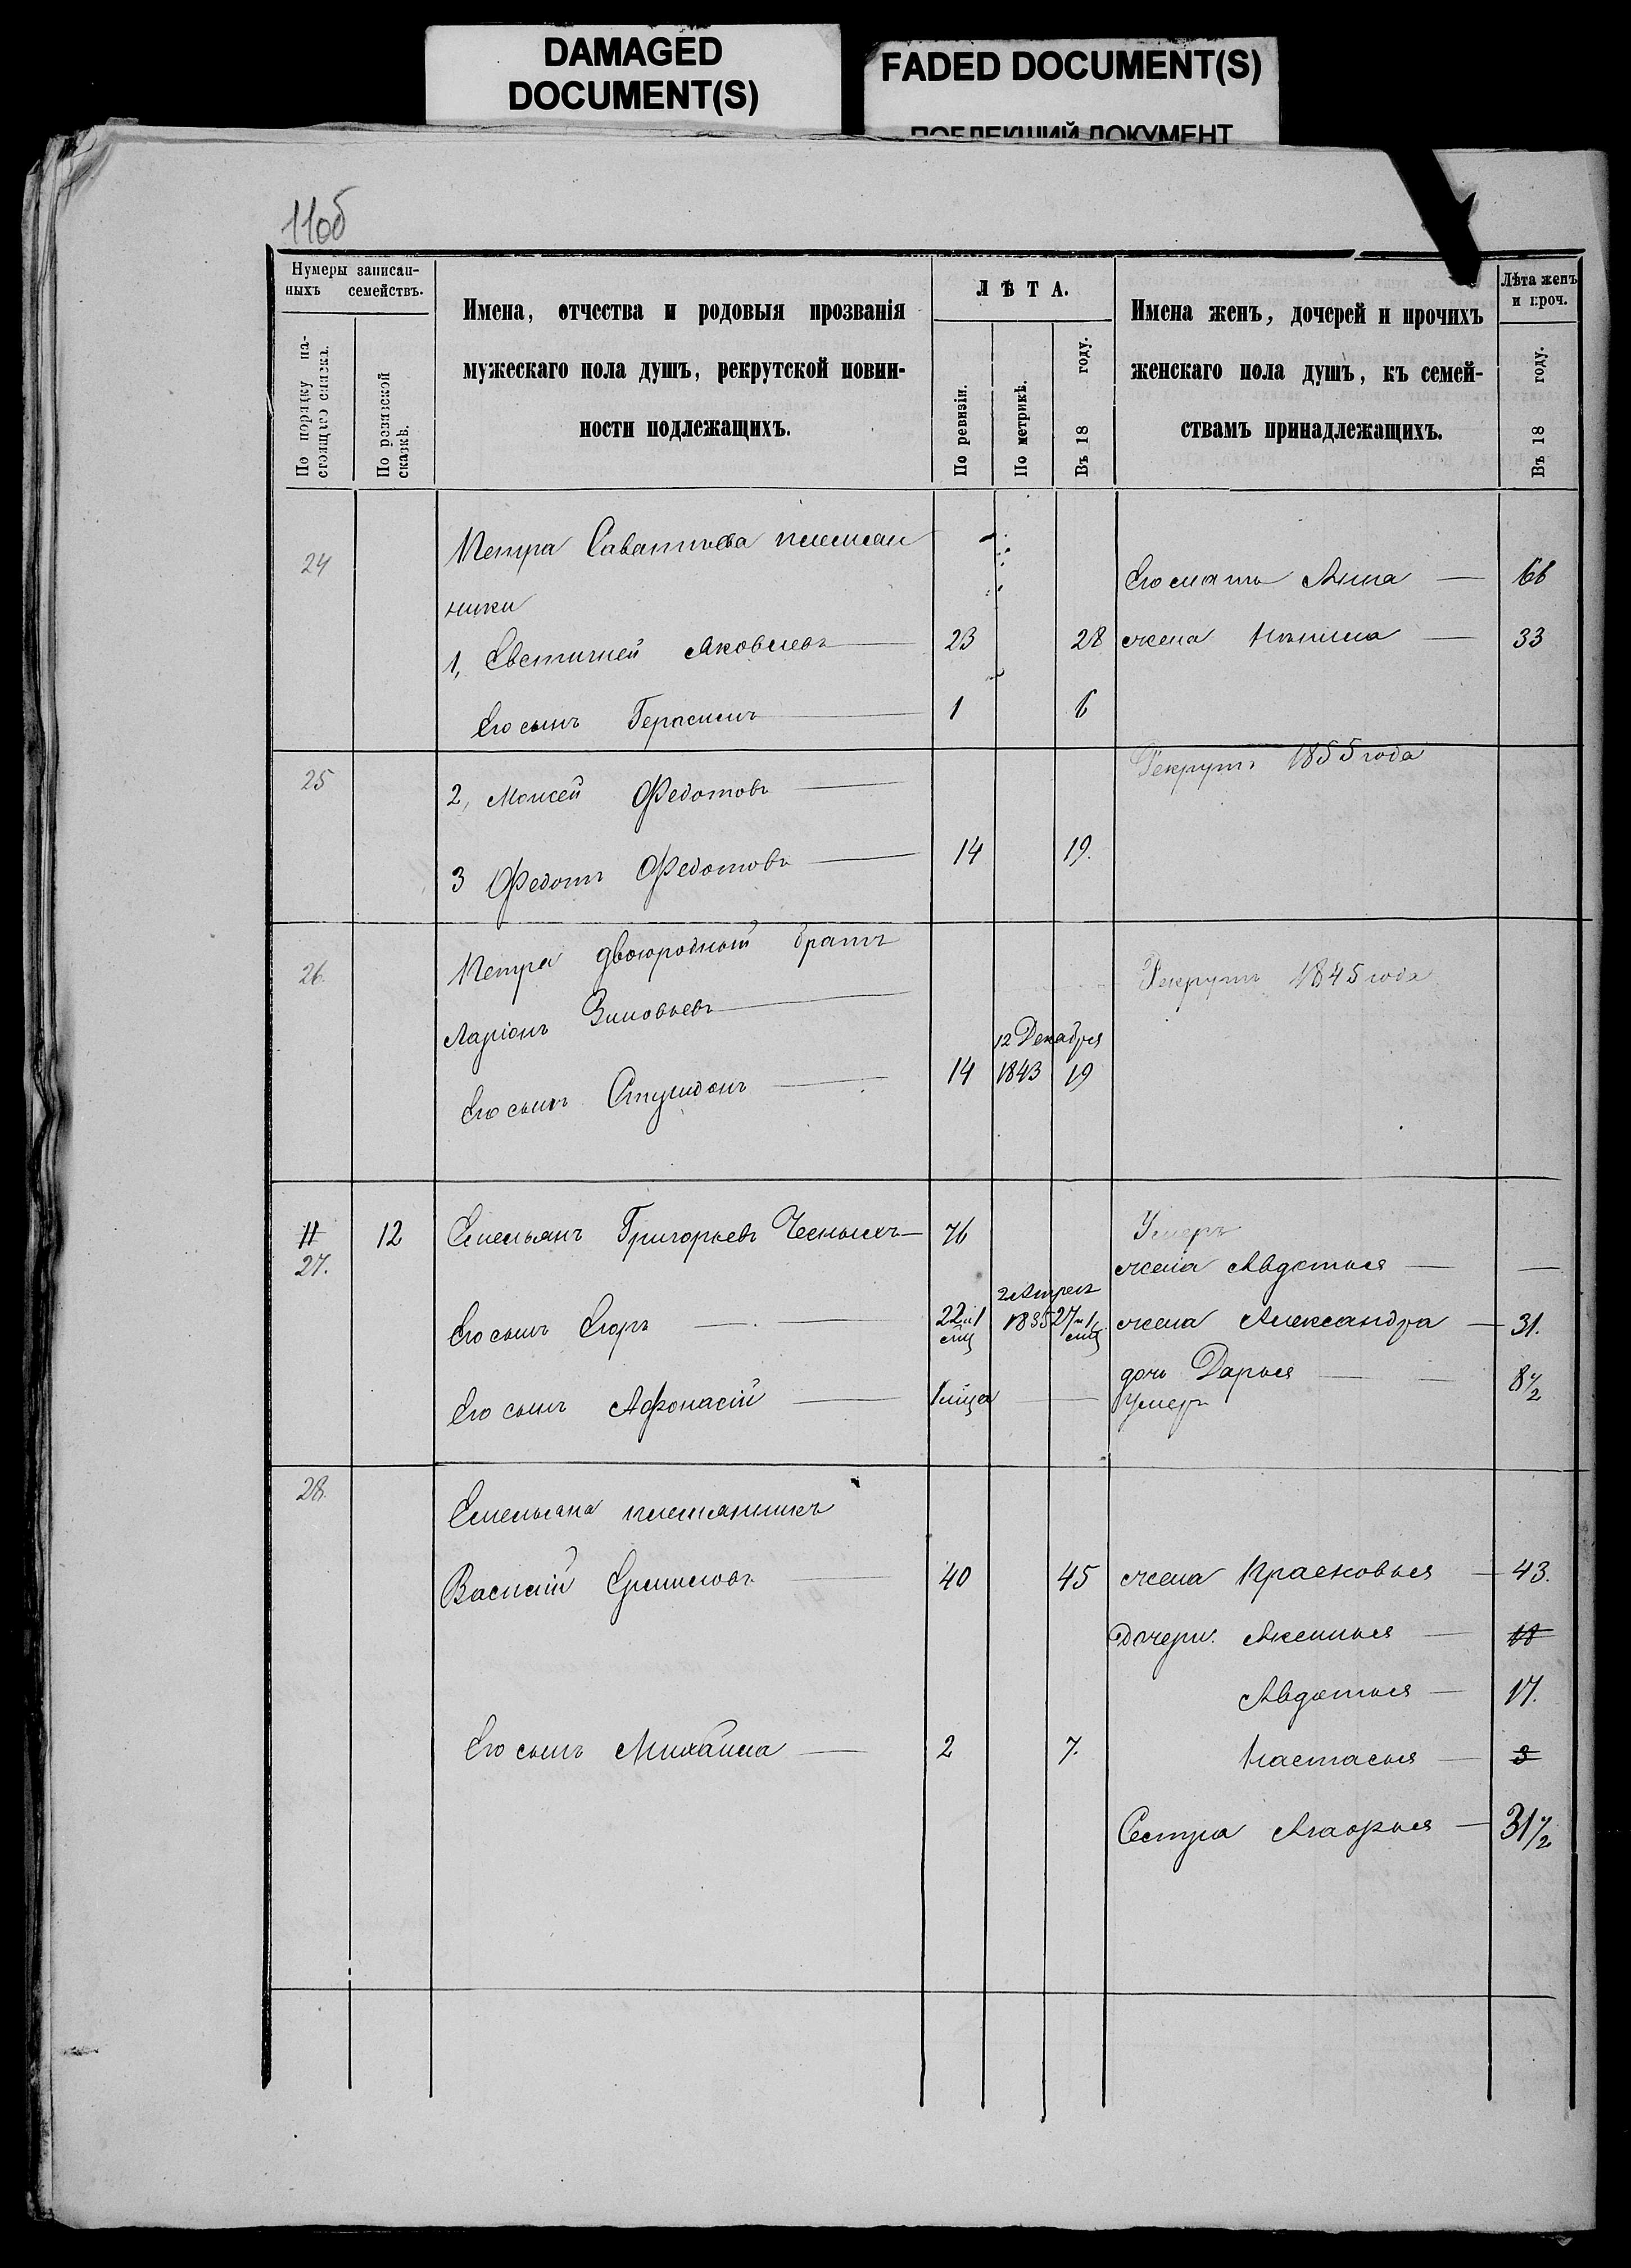 DAMAGED
DOCUMENT(S)
FADED DOCUMENT(S)
ПОБЛЕКШИЙ ДОКУМЕНТ
11об
Нумеры записан-
ныхъ семействъ.
По порядку на-
стоящаго списка.
По ревизской
сказкѣ.
Имена, отчества и родовыя прозванія
мужескаго пола душъ, рекрутской повин-
ности подлежащихъ.
ЛѢТА.
По ревизіи.
По метрикѣ.
Въ 18 году.
Имена женъ, дочерей и прочихъ
женскаго пола душъ, къ семей-
ствамъ принадлежащихъ.
Лѣта женъ
и проч.
Въ 18 году.
24 Петра Саватѣева племян
ники Его мать Анна — 66
1, Евстигней Яковлевъ — 23 28 жена — 33
Его сынъ Герасимъ — 1 6
25 2, Моисей Федотовъ — Рекрутъ 1855 года
3 Федотъ Федотовъ — 14 19.
26. Петра двоюродный братъ
Ларіонъ Зиновьевъ — Рекрутъ 1845 года
12 Декабря
Его сынъ Спиридонъ — 14 1843 19
11 12 Емельянъ Григорьевъ — 76 Умеръ
27. жена Авдотья — —
2 Апреля
Его сынъ Егоръ — 22 и 1 мц 1835 27 и 1 мц жена Александра — 31.
дочь Дарья — 8 1/2
Его сынъ Афонасій — 1 мца — Умеръ
28. Емельяна племянникъ
Василій — 40 45 жена Прасковья — 43.
Дочери. Аксинья — 18
Авдотья — 17.
Его сынъ Михайла — 2 7. Настасья — 3
Сестра Агафья — 31 1/2